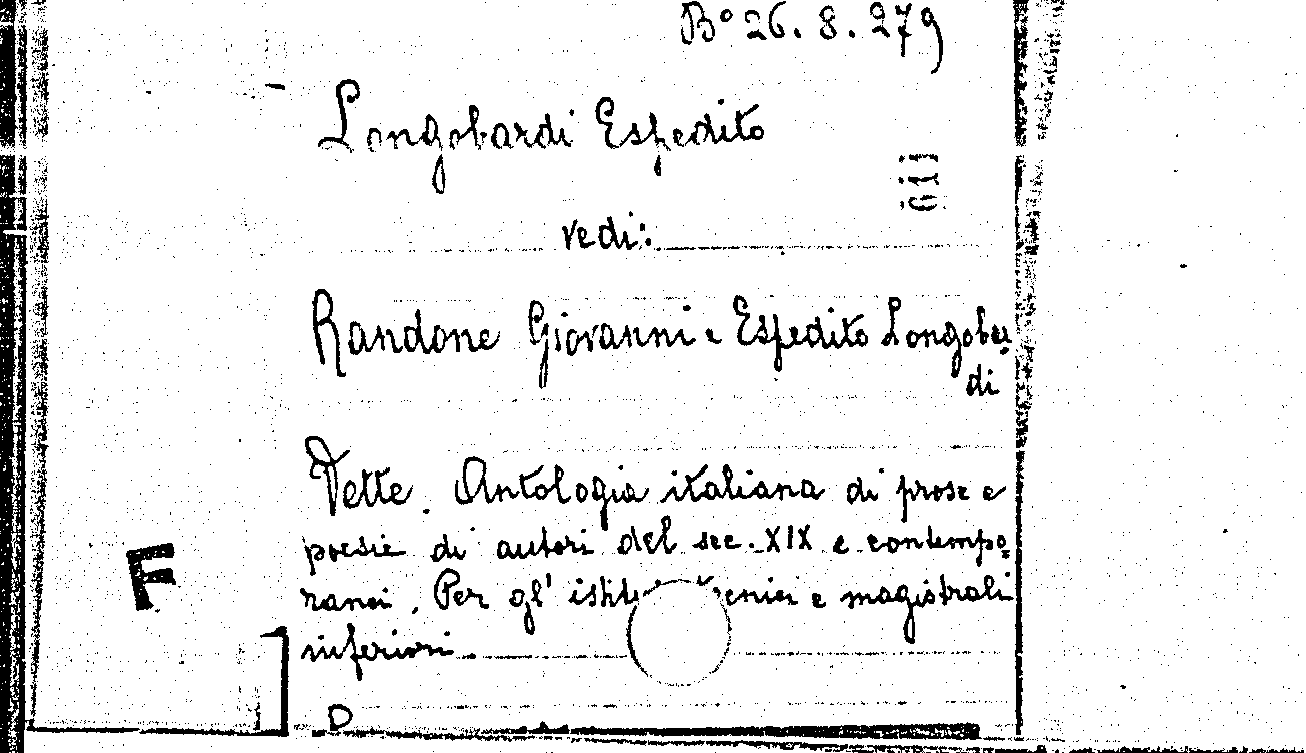 B° 26. 8. 279
Longobardi Espedito
611
vedi:
Randone Giovanni e Espedito Longobar
di
Vette. Antologia italiana di prose e
poesie di autori del sec. XIX e contempo=
ranei. Per gl' istituti tecnici e magistrali
inferiori
F